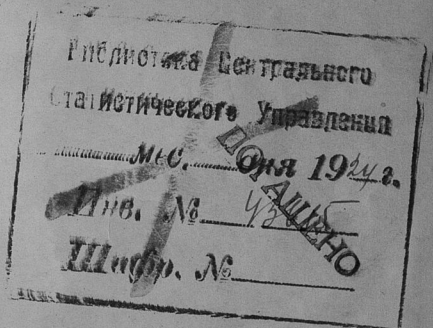 Библиотека Центрального
Статистического Управления
мес. дня 1924 г.
Инв. №
Шифр. №
ПОГАШЕНО